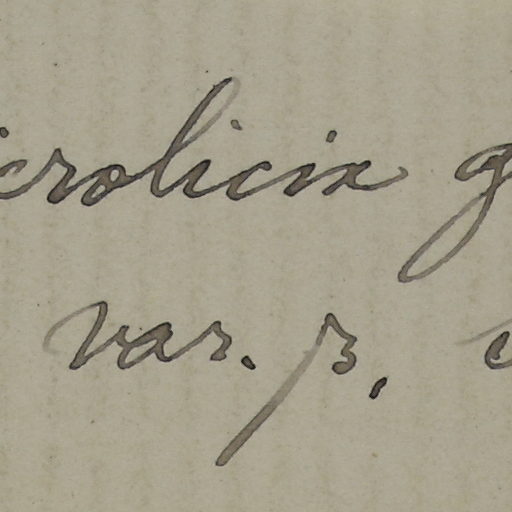 icrolicia g
var. β. c